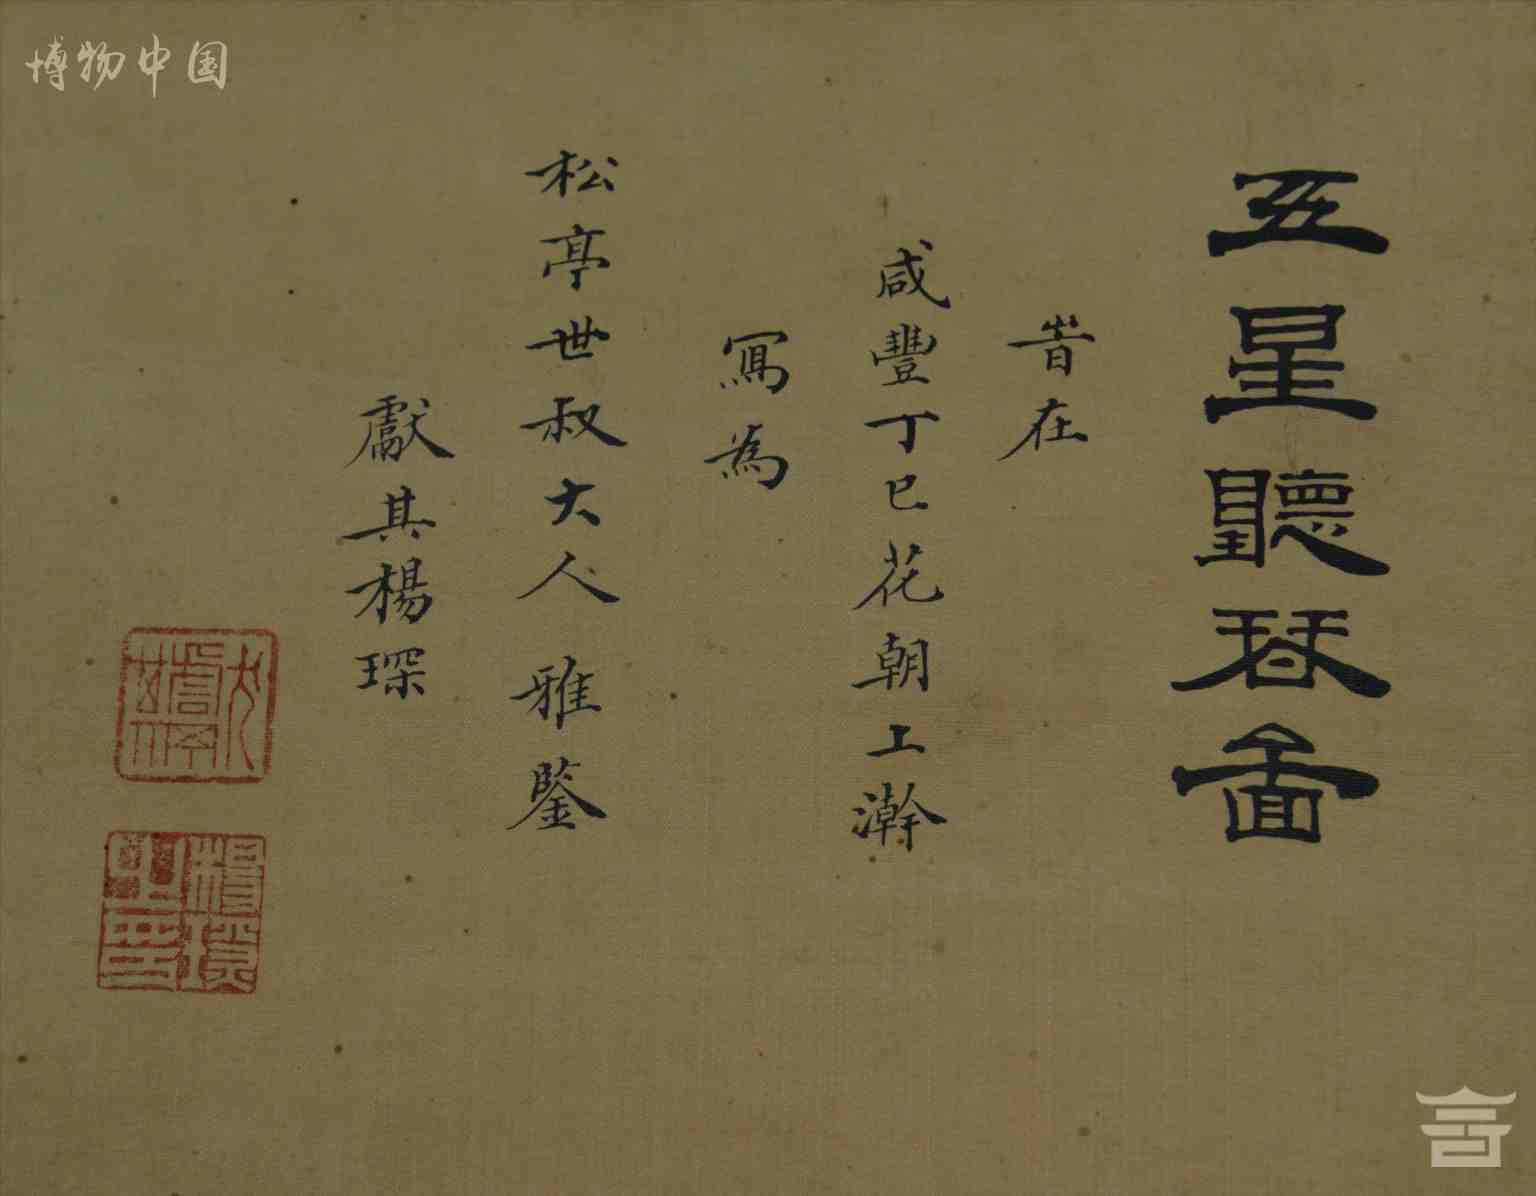 五星聽琴啚
旹在
咸豐丁巳花朝上澣
寫為
松亭世叔大人雅鑒
獻其楊琛
楊琛之印
博物中国